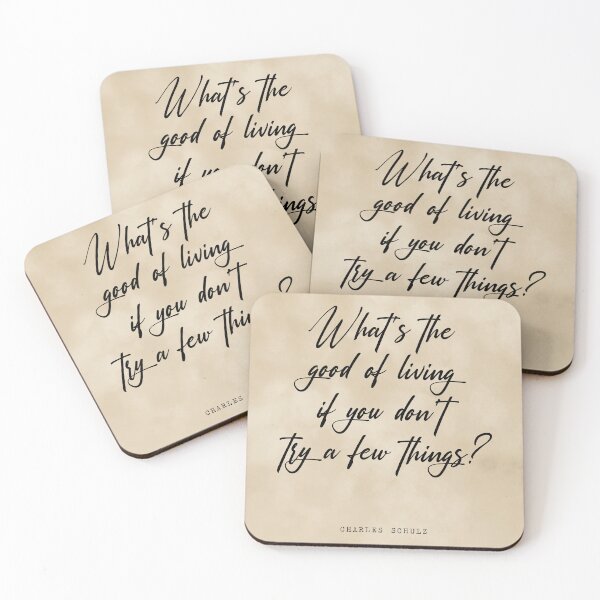 What's the
good of living
if you don't
things
What's the
good of living
if you don't
try a few things?
What's the
good of living
if you don't
try a few things?
CHARLES
What's the
good of living
if you don't
try a few things?
CHARLES SCHULZ